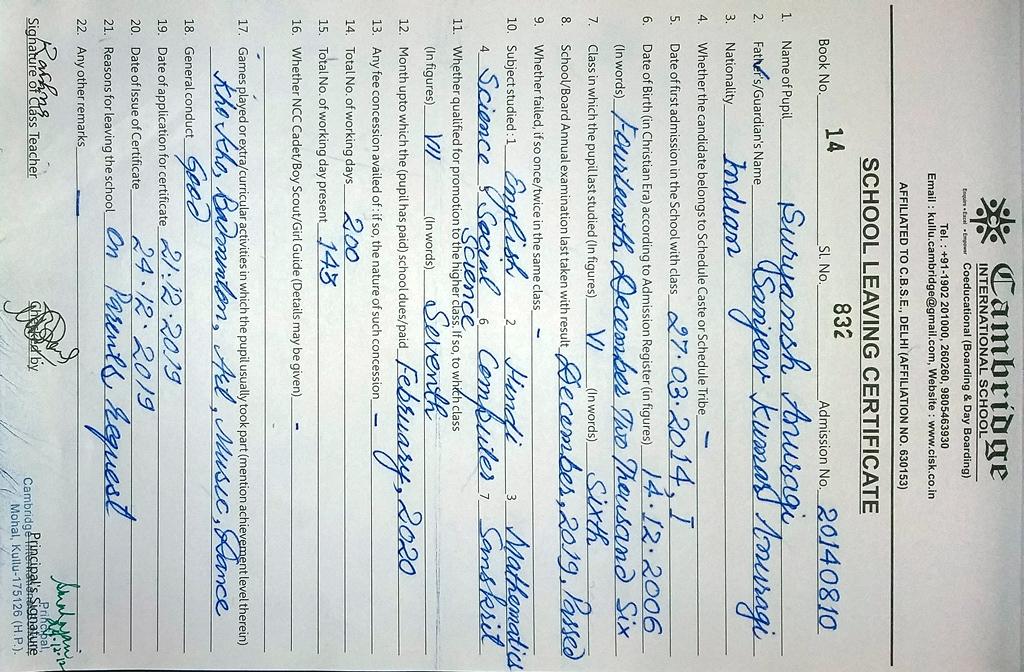 Cambridge
INTERNATIONAL SCHOOL
Coeducational (Boarding & Day Boarding)
Tel. : +91-1902 201000, 260260, 9805463930
Email : kullu.cambridge@gmail.com, Website : www.cisk.co.in
AFFILIATED TO C.B.S.E., DELHI (AFFILIATION NO. 630153)
SCHOOL LEAVING CERTIFICATE
Book No. 14 Sl. No. 832 Admission No. 20140810
1. Name of Pupil Suryansh Anuragi
2. Father's/Guardian's Name Sanjeev Kumar Anuragi
3. Nationality Indian
4. Whether the candidate belongs to Schedule Caste or Schedule Tribe –
5. Date of first admission in the School with class 27.03.2014, I
6. Date of Birth (in Christian Era) according to Admission Register (in figures) 14.12.2006
(In words) Fourteenth December Two Thousand Six
7. Class in which the pupil last studied (In figures) VI (In words) Sixth
8. School/Board Annual examination last taken with result December, 2019, Passed
9. Whether failed, if so once/twice in the same class –
10. Subject studied : 1 English 2 Hindi 3 Mathematics
4 Science 5 Social Science 6 Computer 7 Sanskrit
11. Whether qualified for promotion to the higher class. If so, to which class
(In figures) VII (In words) Seventh
12. Month upto to which the (pupil has paid) school dues/paid February, 2020
13. Any fee concession availed of : if so, the nature of such concession –
14. Total No. of working days 200
15. Total No. of working day present 148
16. Whether NCC Cadet/Boy Scout/Girl Guide (Details may be given) –
17. Games played or extra/curricular activities in which the pupil usually took part (mention achievement level therein)
Kho Kho, Badminton, Art, Music, Dance
18. General conduct Good
19. Date of application for certificate 21.12.2019
20. Date of Issue of Certificate 24.12.2019
21. Reasons for leaving the school On Parents Request
22. Any other remarks –
Signature of Class Teacher Checked by Principal's Signature
Principal
Cambridge International School
Mohal, Kullu-175126 (H.P.)